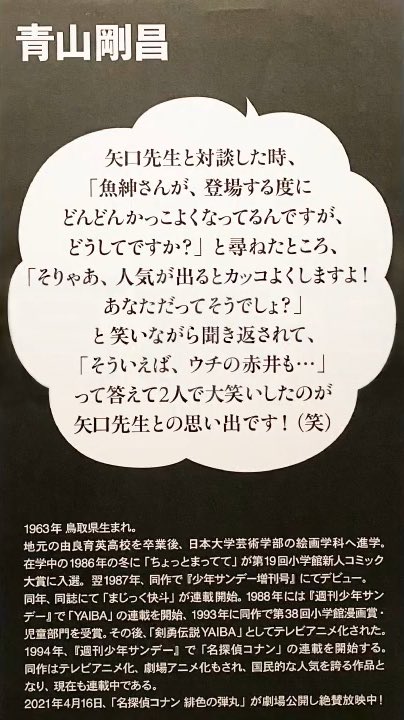 青山剛昌
矢口先生と対談した時、
「魚紳さんが、登場する度に
どんどんかっこよくなってるんですが、
どうしてですか?」と尋ねたところ、
「そりゃあ、人気が出るとカッコよくしますよ!
あなただってそうでしょ?」
と笑いながら聞き返されて、
「そういえば、ウチの赤井も…」
って答えて2人で大笑いしたのが
矢口先生との思い出です!(笑)
1963年 鳥取県生まれ。
地元の由良育英高校を卒業後、日本大学芸術学部の絵画学科へ進学。
在学中の1986年の冬に「ちょっとまってて」が第19回小学館新人コミック
大賞に入選。翌1987年、同作で『少年サンデー増刊号』にてデビュー。
同年、同誌にて「まじっく快斗」が連載開始。1988年には『週刊少年サン
デー』で「YAIBA」の連載を開始、1993年に同作で第38回小学館漫画賞・
児童部門を受賞。その後、「剣勇伝説YAIBA」としてテレビアニメ化された。
1994年、『週刊少年サンデー』で「名探偵コナン」の連載を開始する。
同作はテレビアニメ化、劇場アニメ化もされ、国民的な人気を誇る作品と
なり、現在も連載中である。
2021年4月16日、「名探偵コナン 緋色の弾丸」が劇場公開し絶賛放映中!